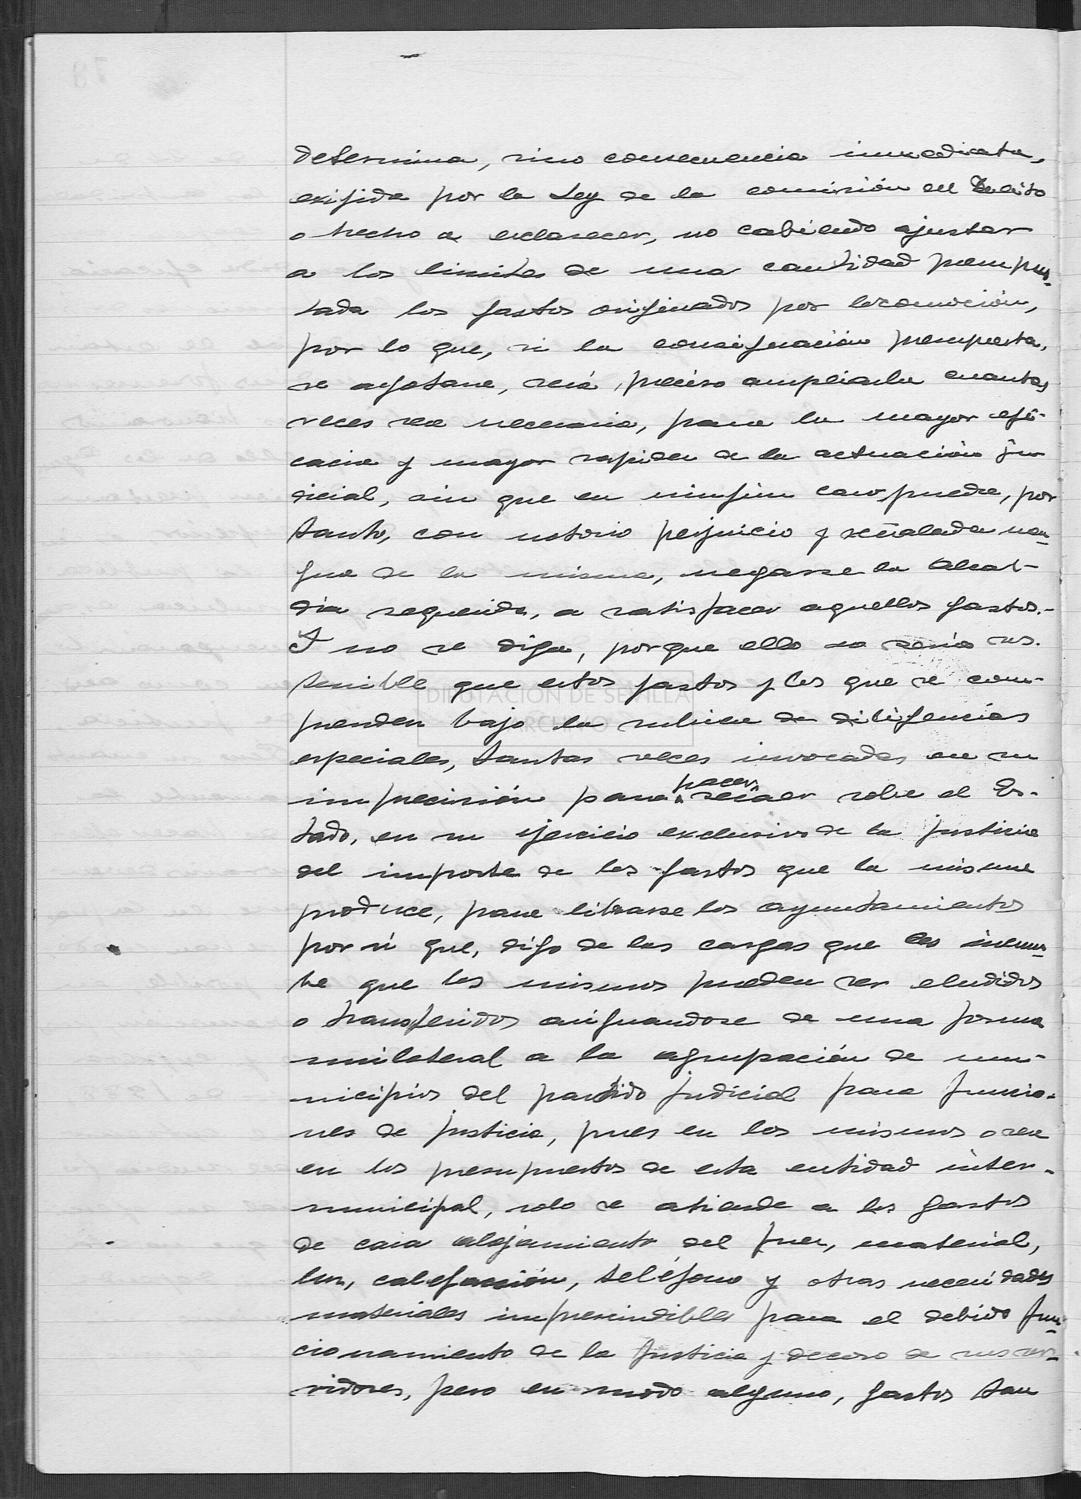 determina, sino consecuencia inmediata,
exijida por la Ley de la comisión del delito
o hecho a esclarecer, no cabiendo ajustar
a los limites de una cantidad presupues-
tada los gastos orijinados por locomoción,
por lo que, si la consignación presupuesta,
se agotase, será preciso ampliarla cuantas
veces sea necesario, para la mayor efi-
cacia y mayor rapidez de la actuación ju
dicial, sin que en ningún caso, pueda, por
tanto, con notorio perjuicio y señalada men-
gua de la misma, negarse la Alcal-
dia requerida, a satisfacer aquellos gastos.-
Y no se diga, porque ello no seria os-
tensible que estos gastos y los que se com-
prenden bajo la rubrica de diligencias
especiales, tantas veces invocadas en su
imprecisión para hacer recaer sobre el Es-
tado, en su ejercicio exclusivo de la justicia
del importe de los gastos que la misma
produce, para librarse los ayuntamientos
por si que, digo de las cargas que les incum-
be que los mismos pueden ser eludidos
o transferidos asignandose de una forma
unilateral a la agrupación de mu-
nicipios del partido judicial para funcio-
nes de justicia, pues en los mismos o sea
en los presupuestos de esta entidad inter-
municipal, solo se atiende a los gastos
de casa alojamiento del Juez, material,
luz, calefacción, teléfono y otras necesidades
materiales imprescindibles para el debido fun-
cionamiento de la Justicia y decoro de sus ser-
vidores, pero en modo alguno, gastos tan
DIPUTACIÓN DE SEVILLA
ARCHIVO